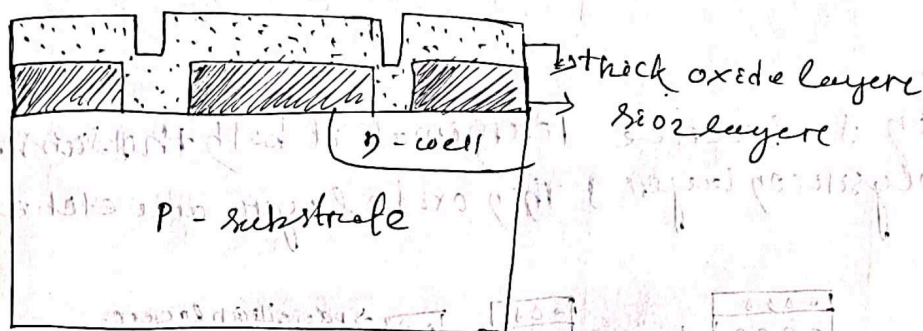 thick oxide layere
sio2 layere
n-well
P-substrate